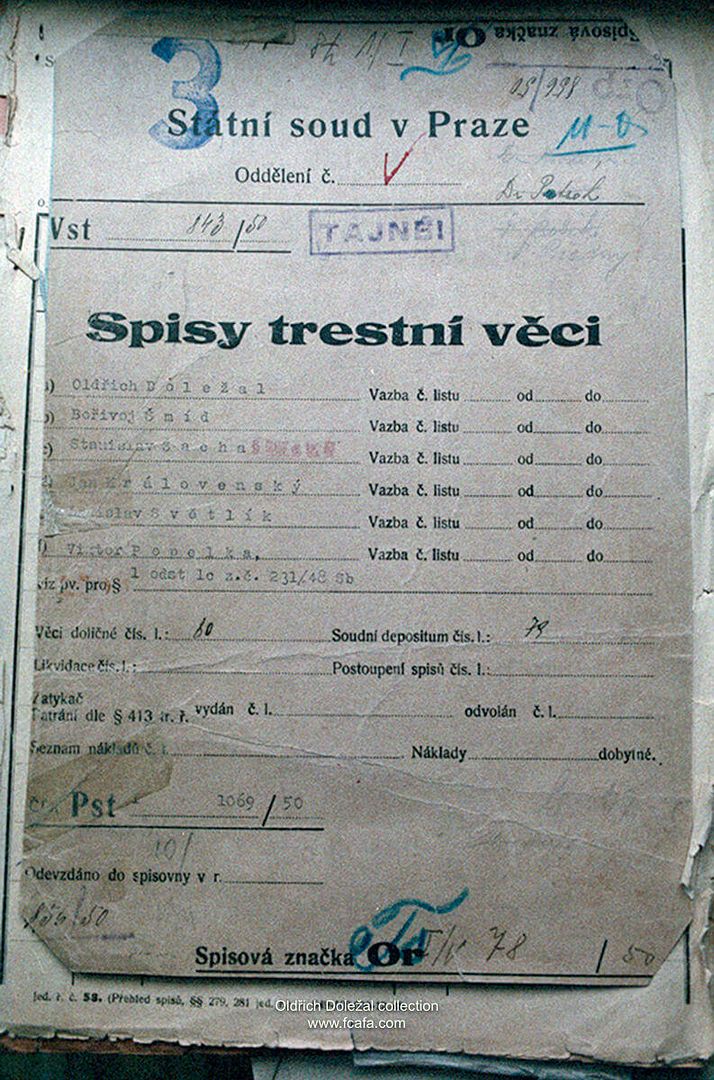 Spisová značka Or
3
Státní soud v Praze
Oddělení č.
Vst 843/50
TAJNÉ!
Spisy trestní věci
Oldřich Doležal Vazba č. listu od do
Bořivoj Šmíd Vazba č. listu od do
Stanislav Šacha Vazba č. listu od do
Jan Královenský Vazba č. listu od do
Světlík Vazba č. listu od do
Viktor Popelka, Vazba č. listu od do
pv. pro § 1 odst 1c z.č. 231/48 Sb
Věci doličné čís. l.: 60 Soudní depositum čís. l.: 79
Likvidace čís. l.: Postoupení spisů čís. l.:
Zatykač
Pátrání dle § 413 tr. ř. vydán č. l. odvolán č. l.
Seznam nákladů č. l. Náklady dobytné.
Pst 1069/50
Odevzdáno do spisovny v r.
Spisová značka Or 78/50
jed. ř. č. 58. (Přehled spisů, §§ 279, 281 jed.
Oldřich Doležal collection
www.fcafa.com